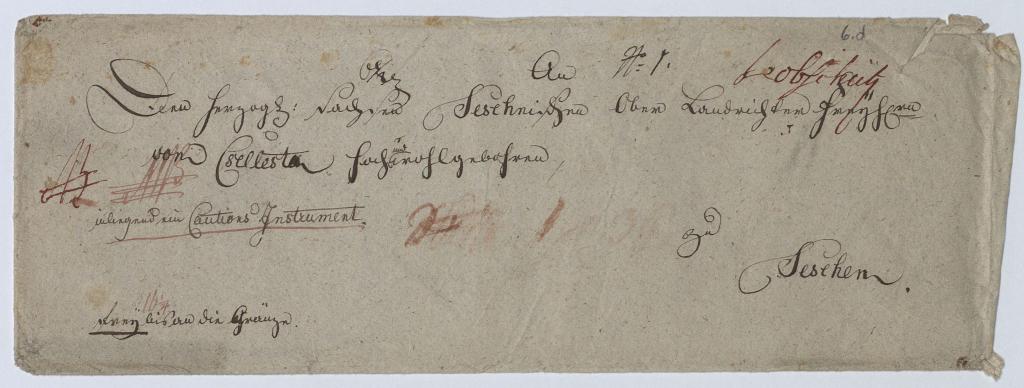 6.d
An No 1. Leobschütz
Den Herzogl: Sachsen Teschnischen Ober Landrichter Freyherrn
von Csellesta hoch und wohlgebohren
inliegend ein Cautions Instrument.
zu
Teschen.
Frey bis an die Gränze.